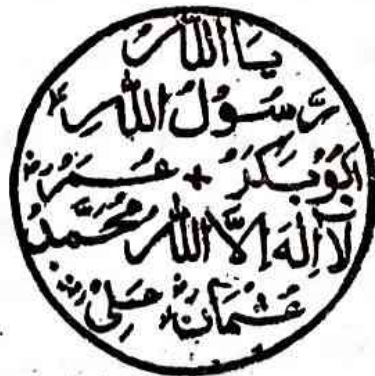 يَا اللّٰهُ
رَّسُوْلُ اللّٰهِ
اَبُوْبَكَرُ + عُمَرُ
لَآ اِلٰهَ اِلَّا اللّٰهُ مُحَمَّدُ
عُثْمَانُ عَلِىْ